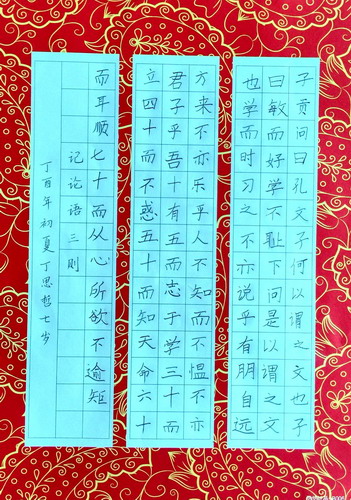 子贡问曰孔文子何以谓之文也子
曰敏而好学不耻下问是以谓之文
也学而时习之不亦说乎有朋自远
方来不亦乐乎人不知而不愠不亦
君子乎吾十有五而志于学三十而
立四十而不惑五十而知天命六十
而耳顺七十而从心所欲不逾矩
记论语三则
丁酉年初夏丁思哲七岁